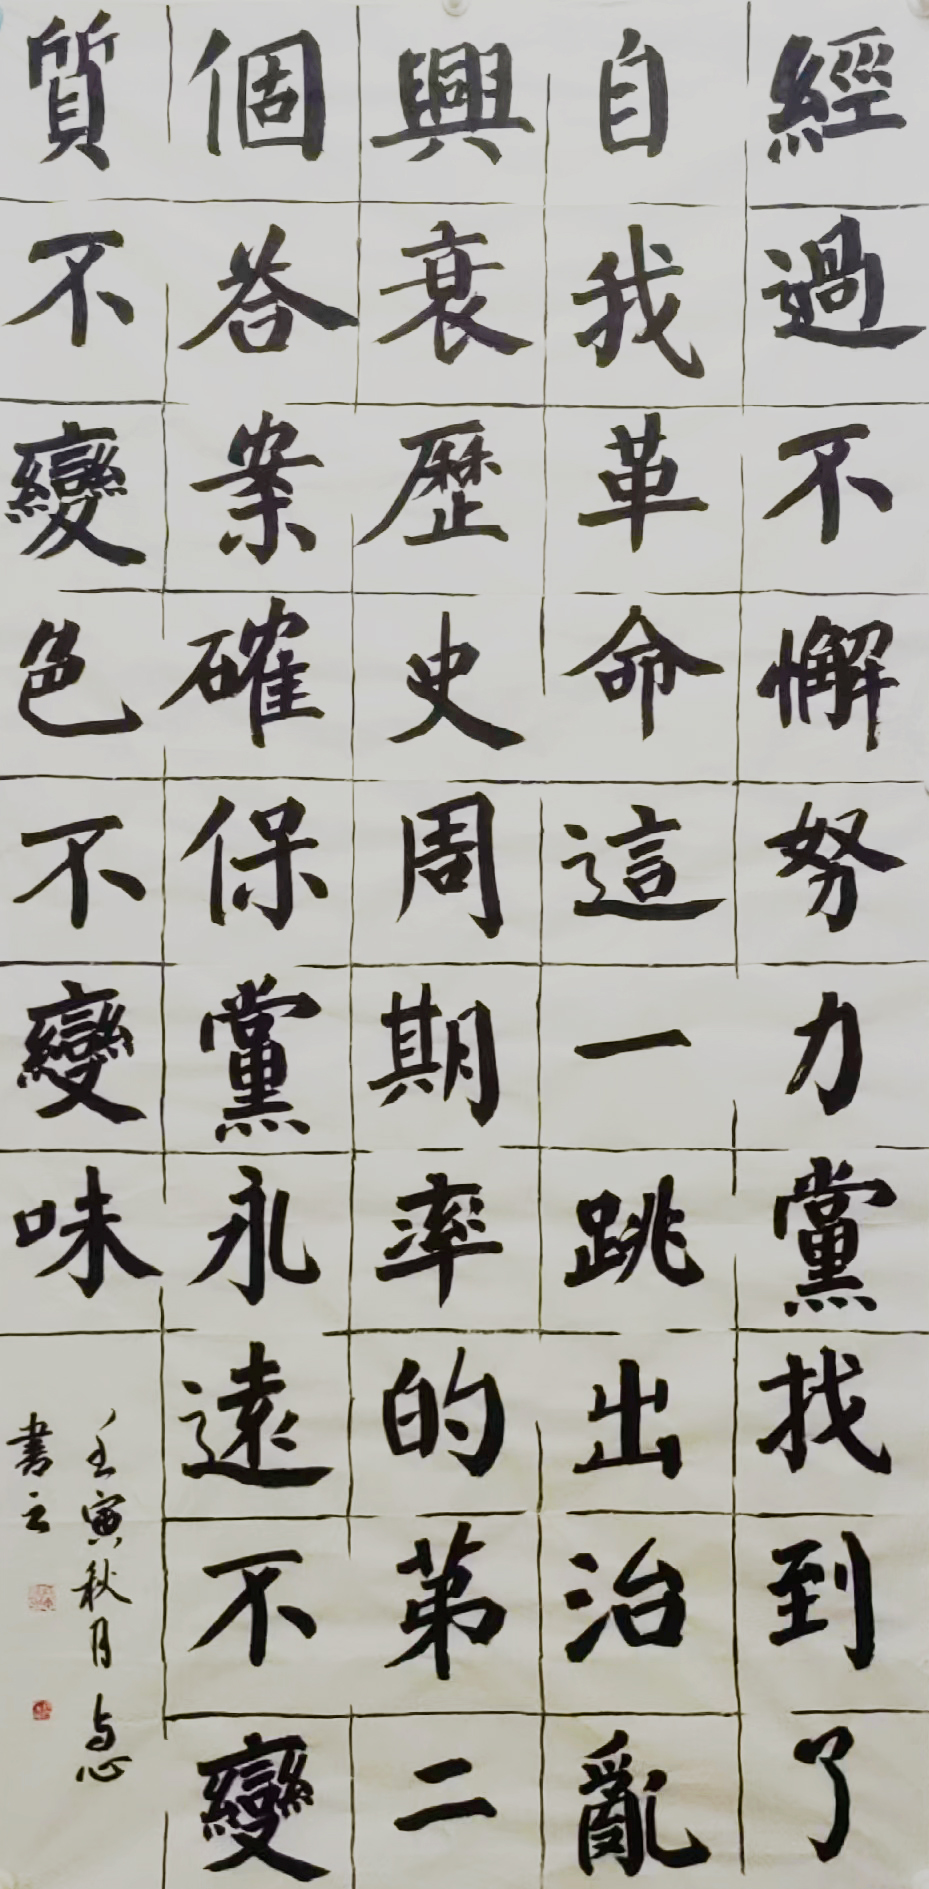 經過不懈努力黨找到了
自我革命這一跳出治亂
興衰歷史周期率的第二
個答案確保黨永遠不變
質不變色不變味
壬寅秋月
書之